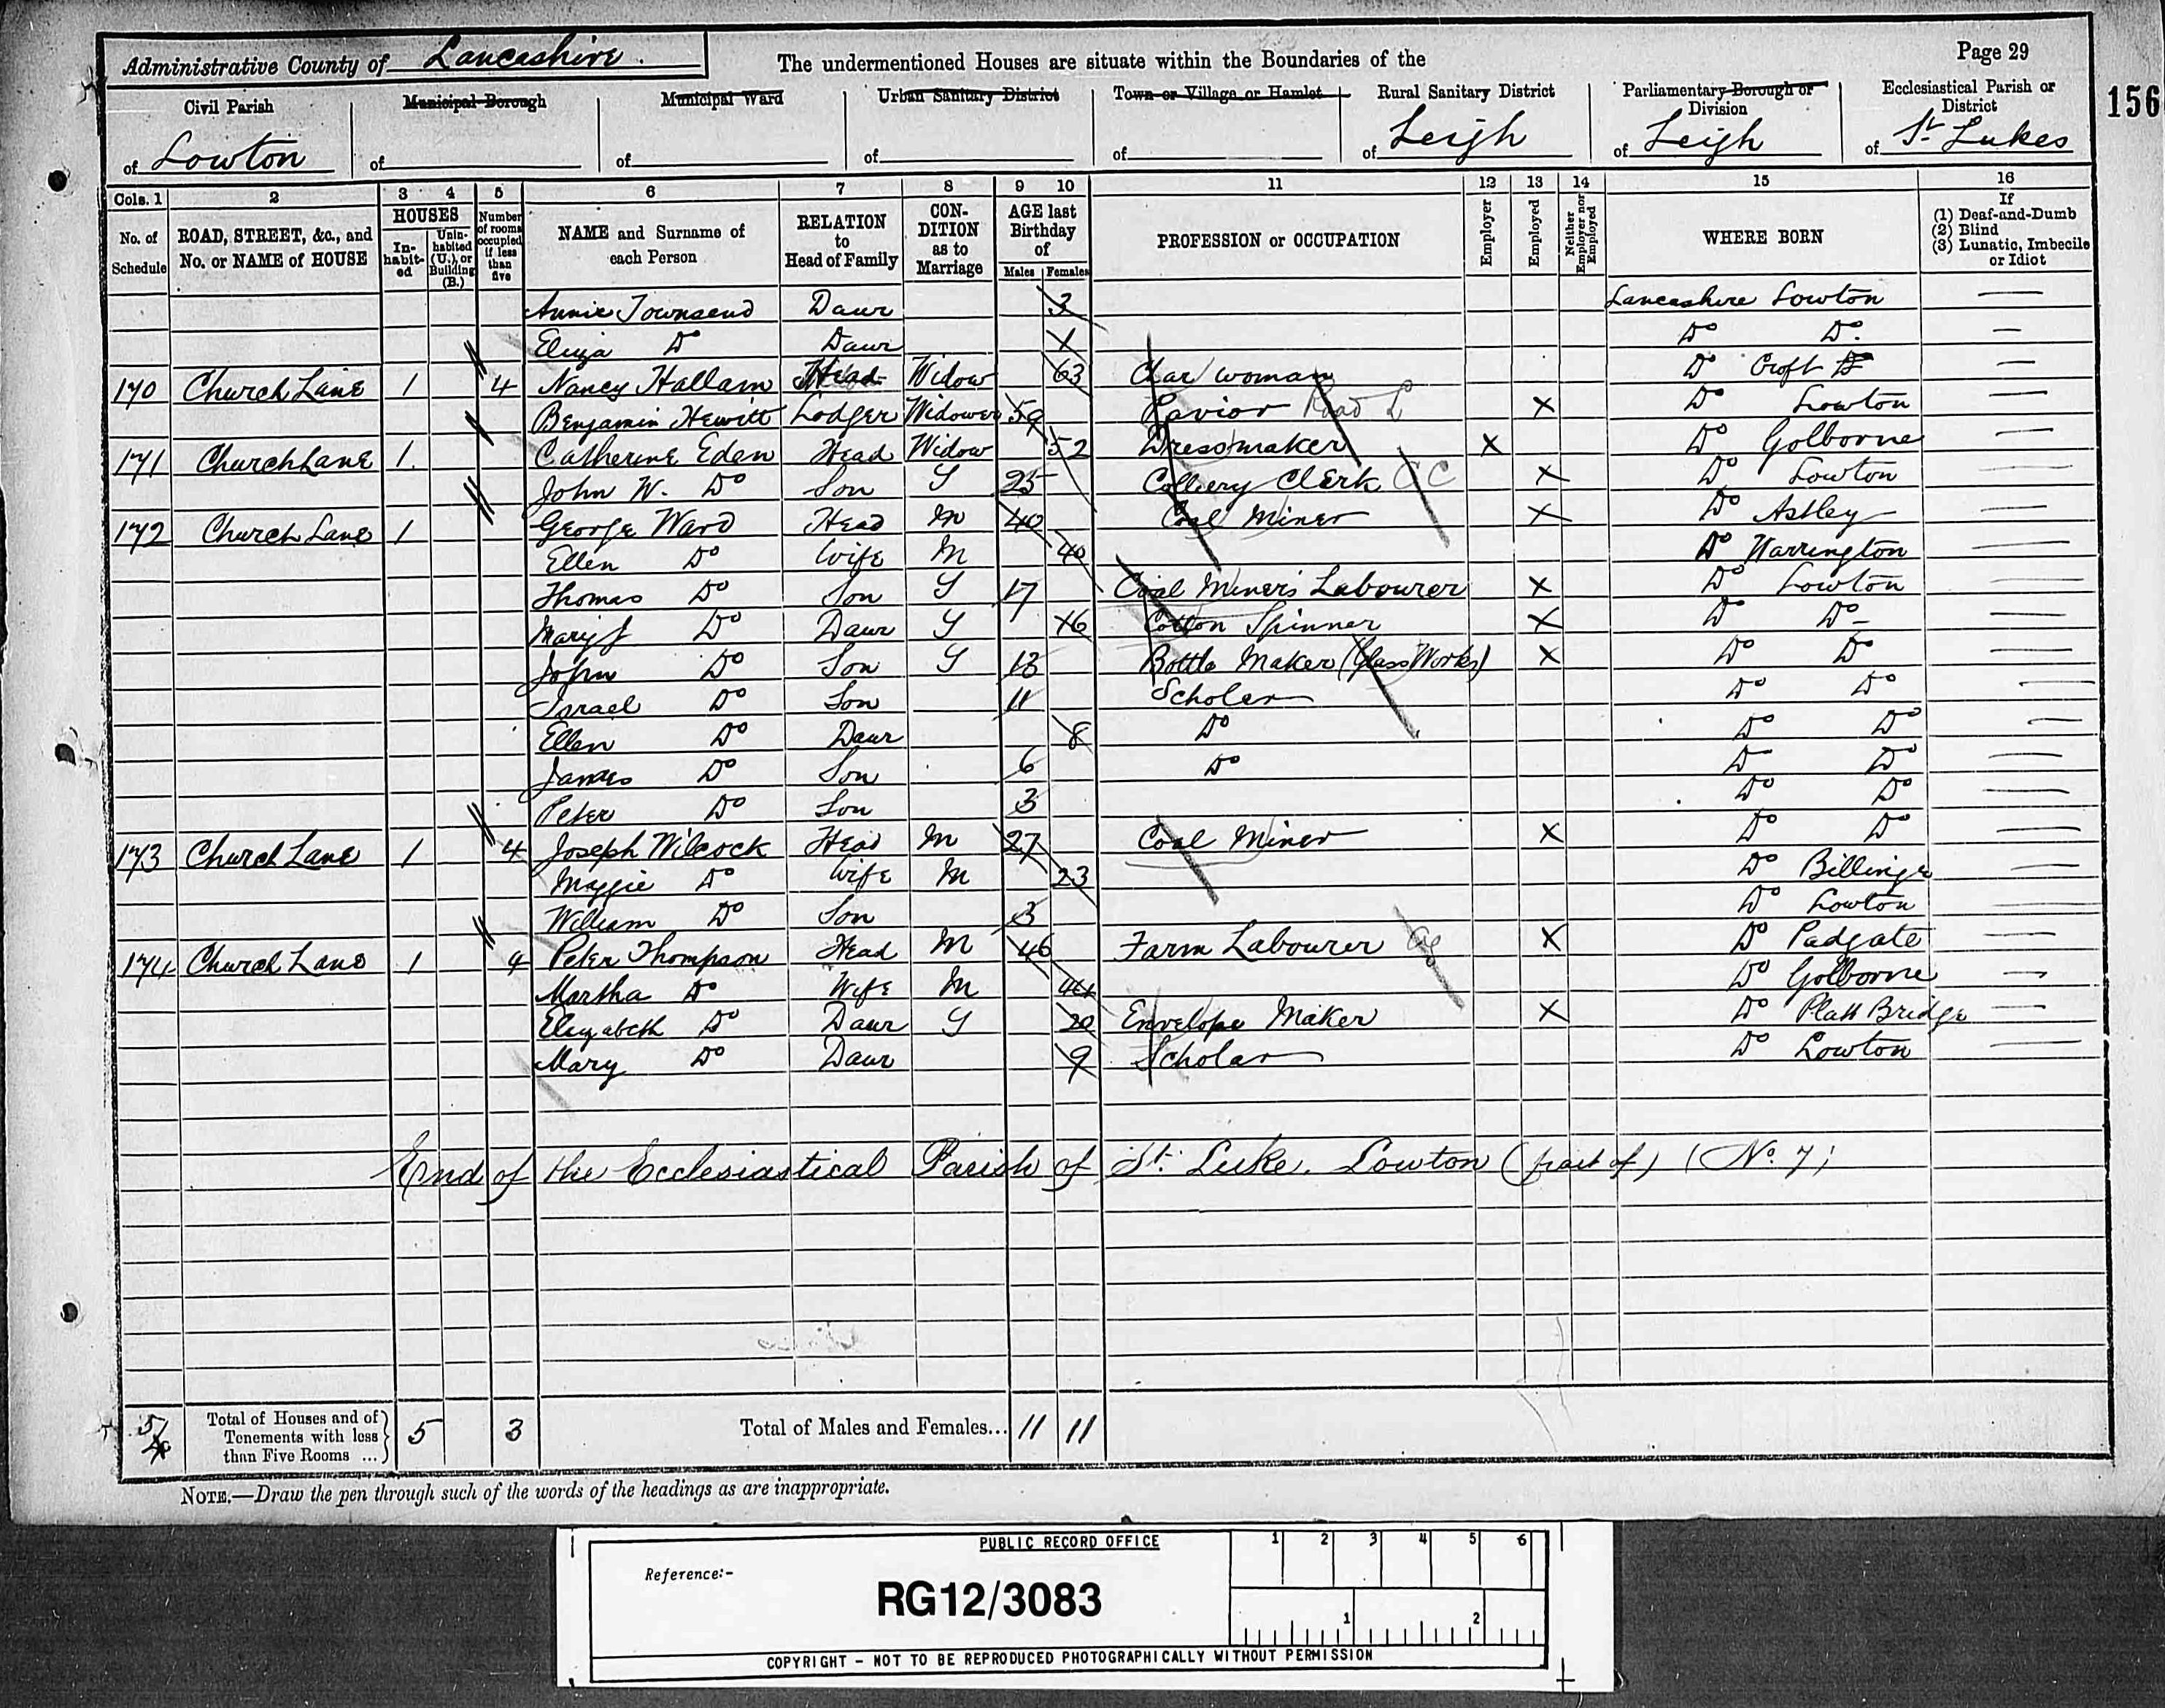 Administrative County of Lancashire. The undermentioned Houses are situate within the Boundaries of the Page 29
Civil Parish Municipal Borough Municipal Ward Urban Sanitary District Town or Village or Hamlet Rural Sanitary District Parliamentary Borough or Division Ecclesiastical Parish or District 156
of Lowton of of of of of Leigh of Leigh of St. Lukes
Cols. 1 2 3 4 5 6 7 8 9 10 11 12 13 14 15 16
No. of Schedule ROAD, STREET, &c., and No. or NAME of HOUSE HOUSES Inhabited Uninhabited (U.), or Building (B.) Number of rooms occupied if less than five NAME and Surname of each Person RELATION to Head of Family CONDITION as to Marriage AGE last Birthday of Males Females PROFESSION or OCCUPATION Employer Employed Neither Employer nor Employed WHERE BORN If (1) Deaf-and-Dumb (2) Blind (3) Lunatic, Imbecile or Idiot
Annie Townsend Daur 3 Lancashire Lowton
Eliza Do Daur 1 Do Do
170 Church Lane 1 4 Nancy Hallam Head Widow 63 Char woman Do Croft
Benjamin Hewitt Lodger Widower 59 Pavior Road L X Do Lowton
171 Church Lane 1 Catherine Eden Head Widow 52 Dressmaker X Do Golborne
John W. Do Son S 25 Colliery Clerk CC X Do Lowton
172 Church Lane 1 George Ward Head M 40 Coal Miner X Do Astley
Ellen Do Wife M 40 Do Warrington
Thomas Do Son S 17 Coal Miner's Labourer X Do Lowton
Mary J Do Daur S 16 Cotton Spinner X Do Do
John Do Son S 13 Bottle Maker (Glass Works) X Do Do
Israel Do Son 11 Scholar Do Do
Ellen Do Daur 8 Do Do Do
James Do Son 6 Do Do Do
Peter Do Son 3 Do Do
173 Church Lane 1 4 Joseph Wilcock Head M 27 Coal Miner X Do Do
Maggie Do Wife M 23 Do Billinge
William Do Son 3 Do Lowton
174 Church Lane 1 4 Peter Thompson Head M 46 Farm Labourer Ag X Do Padgate
Martha Do Wife M 44 Do Golborne
Elizabeth Do Daur S 20 Envelope Maker X Do Platt Bridge
Mary Do Daur 9 Scholar Do Lowton
End of the Ecclesiastical Parish of St. Luke. Lowton (part of) (No. 7)
5 Total of Houses and of Tenements with less than Five Rooms ... 5 3 Total of Males and Females... 11 11
NOTE.—Draw the pen through such of the words of the headings as are inappropriate.
PUBLIC RECORD OFFICE 1 2 3 4 5 6
Reference:-
RG12/3083
1 2
COPYRIGHT - NOT TO BE REPRODUCED PHOTOGRAPHICALLY WITHOUT PERMISSION